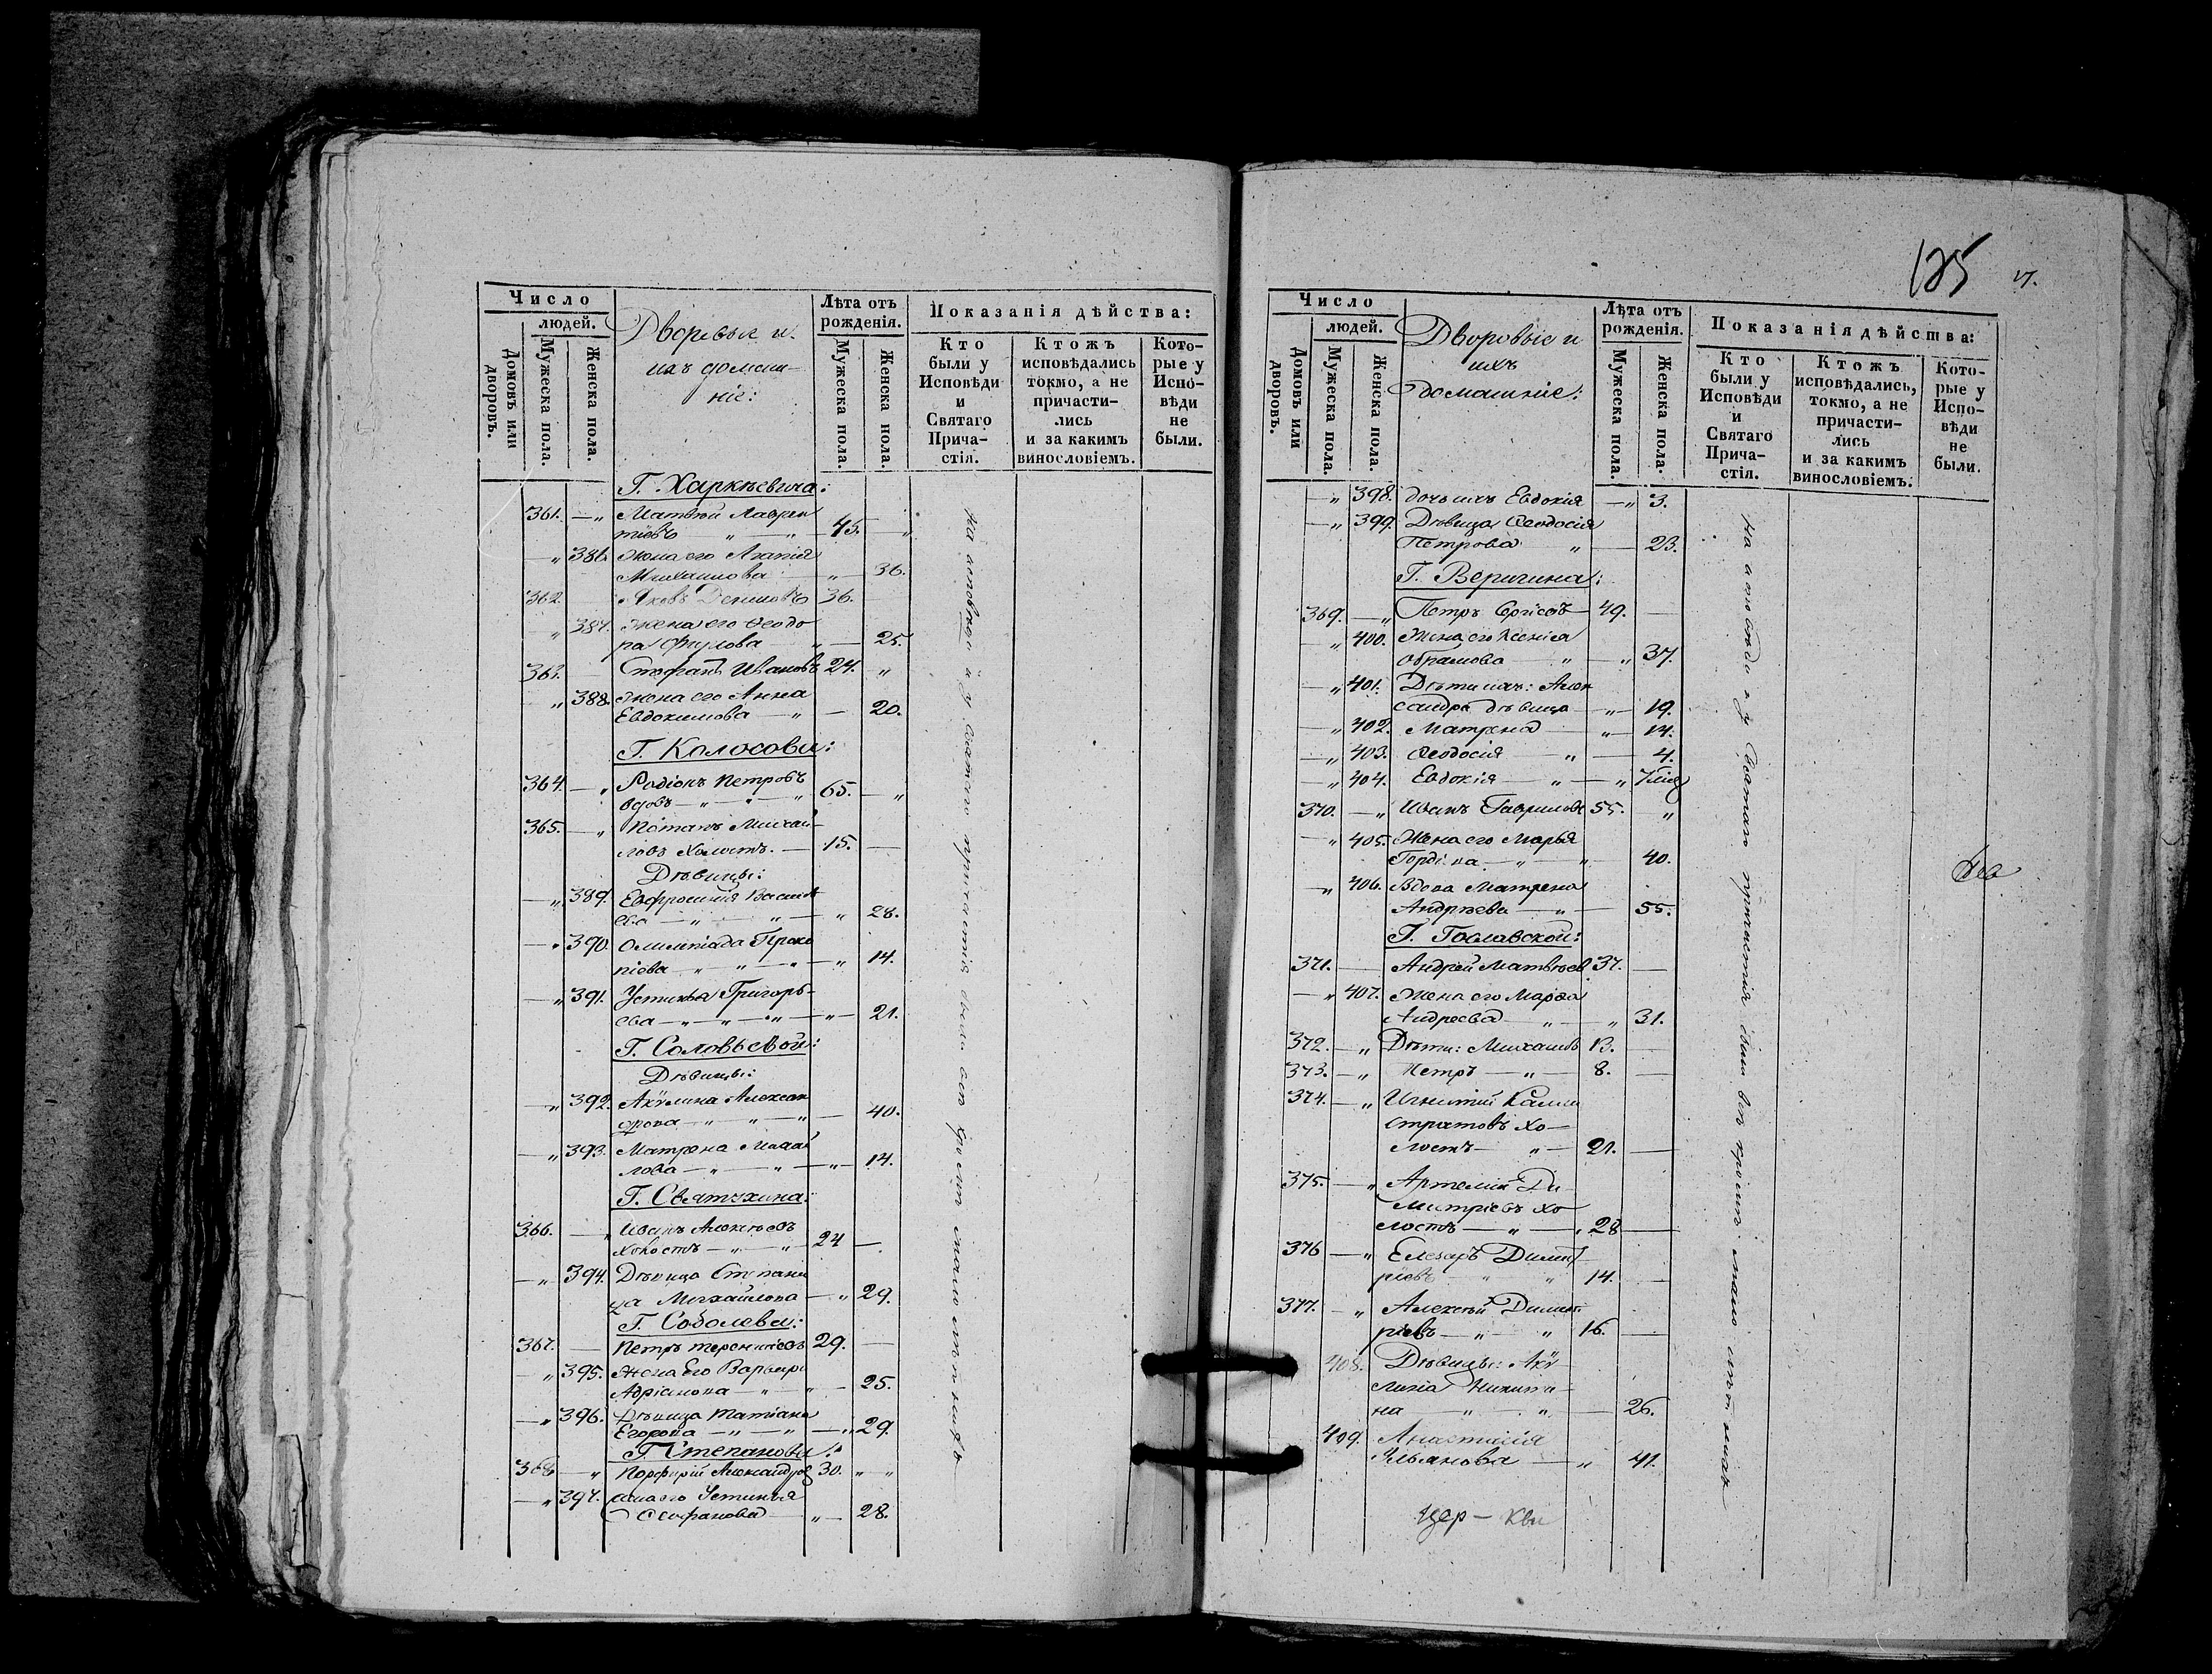 Число
людей.
Домовъ или дворовъ.
Мужеска пола.
Женска пола.
Дворовые и
ихъ домаш-
ніе:
Лѣта отъ
рожденія.
Мужеска пола.
Женска пола.
Показанія дѣйства:
Кто
были у
Исповѣди
и
Святаго
Прича-
стія.
Ктожъ
исповѣдались
токмо, а не
причасти-
лись
и за какимъ
винословіемъ.
Кото-
рые у
Испо-
вѣди
не
были.
Г. Харкѣевича:
361. — „ Матвѣй Лаврен
тіевъ „ — „ 45. — „
— „ 386. Жена его Агапія
Михаилова — „ — 36.
362. Яковъ Денисовъ 36.
„ 387. жена его Ѳеодо
ра „ — 25.
363. Стефанъ Ивановъ 24. „
„ 388. жена его Анна
Евдокимова — „ — 20.
Г. Колосова:
364. — „ Родіонъ Петровъ
вдовъ — „ — „ — „ 65. — „
365. — „ Потапъ Михай-
ловъ Холостъ. — 15. —
Дѣвицы:
— „ 389. Евфросинія Василь
ева — „ — „ — „ 28.
— „ 390. Олимпіада Проко
піева — „ „ — „ — „ 14.
— „ 391. Устинья Григорь-
ева — „ — „ — „ — „ — 21.
Г. Соловьевой:
Дѣвицы:
— „ 392. Акулина Алексан
дрова — „ „ — „ — 40.
— „ 393. Матрена Михай
лова — „ — „ — „ — 14.
Г. Святухина:
366. — „ Иванъ Алексѣевъ
холостъ — „ — „ — 24 —
— „ 394. Дѣвица Степани
да Михайлова — „ 29.
Г. Соболева:
367. — Петръ Терентіевъ 29. —
— „ 395. Жена Его Варвара
Адріанова — „ — „ — 25.
— „ 396. Дѣвица Татіана
Егорова — „ — „ — „ 29.
Г. Степанова:
368 — „ Порфирій Александровъ 30. „ — „
— „ 397. жена его Устинья
Стефанова — „ — 28.
на исповѣди и у святаго причастія были всѣ кромѣ мало
125
Число
людей.
Домовъ или дворовъ.
Мужеска пола.
Женска пола.
Дворовые и
ихъ
домашніе:
Лѣта отъ
рожденія.
Мужеска пола.
Женска пола.
Показанія дѣйства:
Кто
были у
Исповѣди
и
Святаго
Прича-
стія.
Ктожъ
исповѣдались,
токмо, а не
причасти-
лись
и за какимъ
винословіемъ.
Кото-
рые у
Испо-
вѣди
не
были.
— „ 398. дочь ихъ Евдокія — „ 3.
— „ 399. Дѣвица Ѳеодосія
Петрова „ — 23.
Г. Веригина:
369. — „ Петръ 49. —
— „ 400. Жена его Ксенія
Обрамова — „ — „ 37.
— „ 401. Дѣти ихъ: Алек
сандра дѣвица — „ — 19.
— „ 402. Матрена — „ — 14.
— „ 403. Ѳеодосія — „ — 4.
— „ 404. Евдокія — „ — „
370. — „ Иванъ Гавриловъ 55. „
— „ 405. Жена его Марья
— „ „ 40.
— „ 406. Вдова Матрена
Андрѣева — „ — 55.
Г. Гославской:
371. — Андрей Матвѣевъ 37. —
— „ 407. Жена его Марѳа
Андреева — „ — „ 31.
372. — „ Дѣти: Михаилъ 13. —
373. — „ Петръ — „ — 8. —
374. — „ Игнатій Калли
стратовъ хо-
лостъ — „ — 21. —
375. — „ Артемій Ди-
митріевъ хо-
лостъ — „ — „ 28 —
376 — „ Елезаръ Димит
ріевъ „ „ 14. —
377. — „ Алексѣй Димит
ріевъ — „ — „ 16. —
408. Дѣвицы: Аку-
лина Никити-
на — „ — „ — 26.
409. Анастасія
Ульянова — „ 41.
на исповѣди и у Святаго причастія были всѣ кромѣ мало
Цер — кви